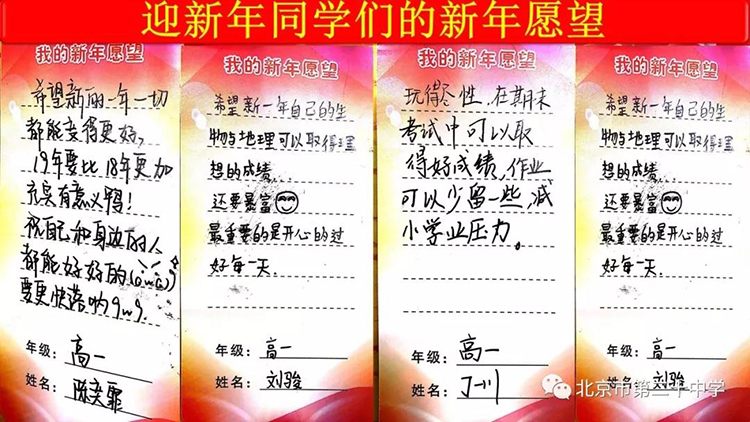 迎新年同学们的新年愿望
我的新年愿望
希望新的一年一切
都能变得更好,
19年要比18年更加
充实有意义鸭!
祝自己和身边的人
都能好好的(owo)
要更快落呐gwg.
年级: 高一
姓名: 陈奕霏
我的新年愿望
希望新一年自己的生
物与地理可以取得理
想的成绩...
还要暴富
最重要的是开心的过
好每一天.
年级: 高一
姓名: 刘骏
我的新年愿望
玩得尽性,在期末
考试中可以取
得好成绩,作业
可以少留一些,减
小学业压力。
年级: 高一
姓名: 丁川
我的新年愿望
希望新一年自己的生
物与地理可以取得理
想的成绩...
还要暴富
最重要的是开心的过
好每一天.
年级: 高一
姓名: 刘骏
北京市第二十中学